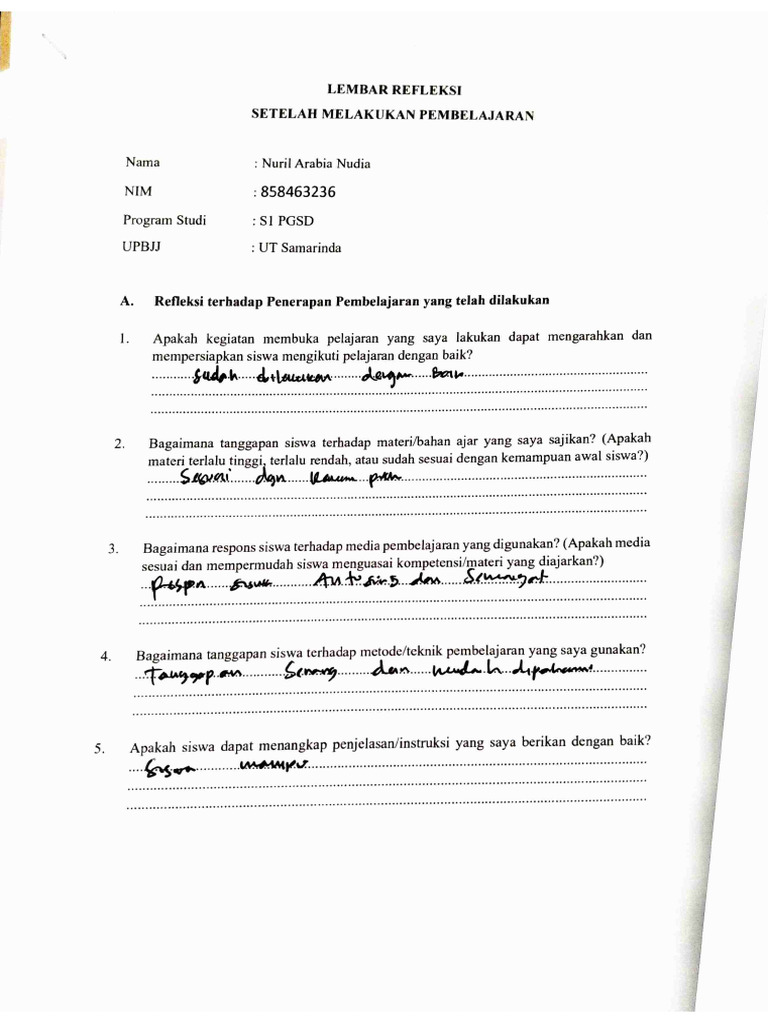 LEMBAR REFLEKSI
SETELAH MELAKUKAN PEMBELAJARAN
Nama : Nuril Arabia Nudia
NIM : 858463236
Program Studi : S1 PGSD
UPBJJ : UT Samarinda
A. Refleksi terhadap Penerapan Pembelajaran yang telah dilakukan
1. Apakah kegiatan membuka pelajaran yang saya lakukan dapat mengarahkan dan
mempersiapkan siswa mengikuti pelajaran dengan baik?
Sudah dilakukan dengan Baik
2. Bagaimana tanggapan siswa terhadap materi/bahan ajar yang saya sajikan? (Apakah
materi terlalu tinggi, terlalu rendah, atau sudah sesuai dengan kemampuan awal siswa?)
Sesuai dgn
3. Bagaimana respons siswa terhadap media pembelajaran yang digunakan? (Apakah media
sesuai dan mempermudah siswa menguasai kompetensi/materi yang diajarkan?)
Respon siswa dan Semangat
4. Bagaimana tanggapan siswa terhadap metode/teknik pembelajaran yang saya gunakan?
Tanggapan Senang dan mudah dipahami
5. Apakah siswa dapat menangkap penjelasan/instruksi yang saya berikan dengan baik?
Siswa mampu